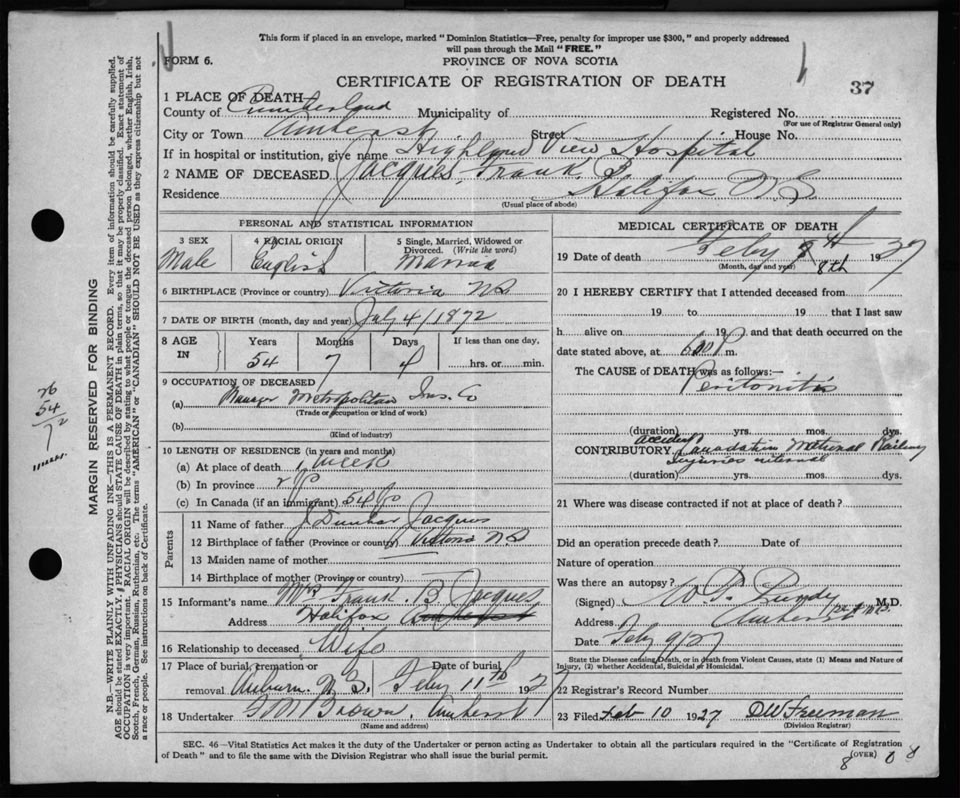 This form if placed in an envelope, marked "Dominion Statistics—Free, penalty for improper use $300," and properly addressed
will pass through the Mail "FREE."
FORM 6.
PROVINCE OF NOVA SCOTIA
CERTIFICATE OF REGISTRATION OF DEATH
37
1 PLACE OF DEATH
County of Cumberland Municipality of Registered No.
(For use of Registrar General only)
City or Town Amherst Street House No.
If in hospital or institution, give name Highland View Hospital
2 NAME OF DECEASED Jacques, Frank B
Residence Halifax N.S.
(Usual place of abode)
PERSONAL AND STATISTICAL INFORMATION
3 SEX 4 RACIAL ORIGIN 5 Single, Married, Widowed or Divorced. (Write the word)
Male English Married
6 BIRTHPLACE (Province or country) Victoria NS
7 DATE OF BIRTH (month, day and year) July 4/1872
8 AGE IN Years Months Days If less than one day,
54 7 4 hrs. or min.
9 OCCUPATION OF DECEASED
(a) Manager Metropolitan Ins. Co
(Trade or occupation or kind of work)
(b)
(Kind of industry)
10 LENGTH OF RESIDENCE (in years and months)
(a) At place of death 1 week
(b) In province
(c) In Canada (if an immigrant) 54
Parents
11 Name of father J Dunbar Jacques
12 Birthplace of father (Province or country) Victoria NS
13 Maiden name of mother
14 Birthplace of mother (Province or country)
15 Informant's name Mrs Frank. B. Jacques
Address Halifax
16 Relationship to deceased Wife
17 Place of burial, cremation or removal Auburn N.S. Date of burial Feby 11th 1927
18 Undertaker Brown, Amherst
(Name and address)
MEDICAL CERTIFICATE OF DEATH
19 Date of death Feby 8th 1927
(Month, day and year) 8th
20 I HEREBY CERTIFY that I attended deceased from
19 to 19 that I last saw
h alive on 19 and that death occurred on
date stated above, at P m.
The CAUSE of DEATH was as follows:—
Peritonitis
(duration) yrs. mos. dys.
CONTRIBUTORY accident Canadian National Railway
injuries internal
(duration) yrs. mos. dys.
21 Where was disease contracted if not at place of death?
Did an operation precede death? Date of
Nature of operation
Was there an autopsy?
(Signed) M.D.
Address Amherst
Date Feby 9/27
State the Disease causing Death, or in death from Violent Causes, state (1) Means and Nature of
Injury, (2) whether Accidental, Suicidal or Homicidal.
22 Registrar's Record Number
23 Filed Feb 10 1927 DW Freeman
(Division Registrar)
SEC. 46—Vital Statistics Act makes it the duty of the Undertaker or person acting as Undertaker to obtain all the particulars required in the "Certificate of Registration
of Death" and to file the same with the Division Registrar who shall issue the burial permit.
(OVER)
8 0 8
MARGIN RESERVED FOR BINDING
N.B.—WRITE PLAINLY WITH UNFADING INK—THIS IS A PERMANENT RECORD. Every item of information should be carefully supplied.
AGE should be stated EXACTLY. PHYSICIANS should STATE CAUSE OF DEATH in plain terms, so that it may be properly classified. Exact statement of
OCCUPATION is very important. RACIAL ORIGIN will be described by stating to what people or tongue the deceased person belonged, whether English, Irish,
Scotch, French, German, Russian, Ruthenian, etc. The terms "AMERICAN" or "CANADIAN" SHOULD NOT BE USED as they express citizenship but not
a race or people. See instructions on back of Certificate.
26
54
72